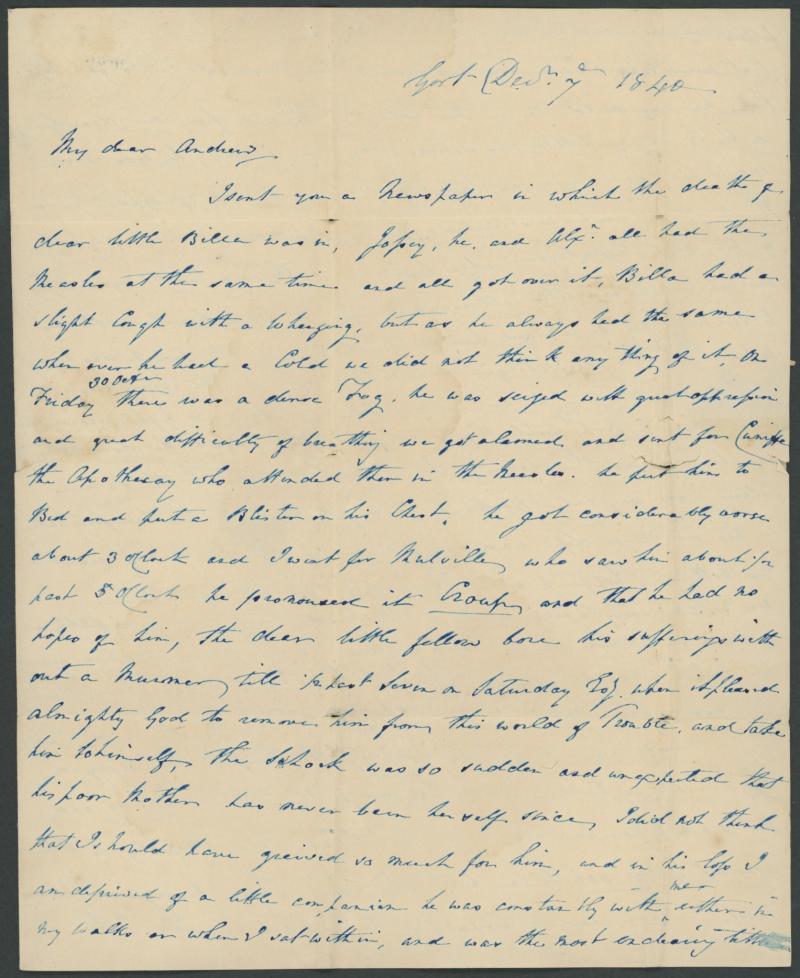 Gort Decr. 7th 1840
My dear Andrew
I sent you a Newspaper in which the death of
dear little Billa was in, Jassey, he, and Alxr. all had the
Measles at the same time and all got over it, Billa had a
slight Cough with a Wheazing, but as he always had the same
when ever he had a Cold we did not think any thing of it, On
30 Octr
Friday there was a dense Fog, he was seized with great oppression
and great difficulty of breathing we got alarmed and sent for Cuniffe
the Apothecay who attended them in the Measles. he put him to
Bed and put a Blister on his Chest, he got considerably worse
about 3 oClock and I went for Mulville, who saw him about 1/2
past 5 oClock he pronounced it Croup, and that he had no
hopes of him, the dear little fellow bore his sufferings with
out a Murmer, till 1/2 past Seven on Saturday Evg. when it pleased
almighty God to remove him from this world of Trouble, and take
him to himself, the Schock was so sudden and unexpected that
his poor Mother has never been herself since, I did not think
that I should have greived so much for him, and in his loss I
am deprived of a little companian he was constantly with
me
either in
my walks or when I sat within, and was the most endearing little